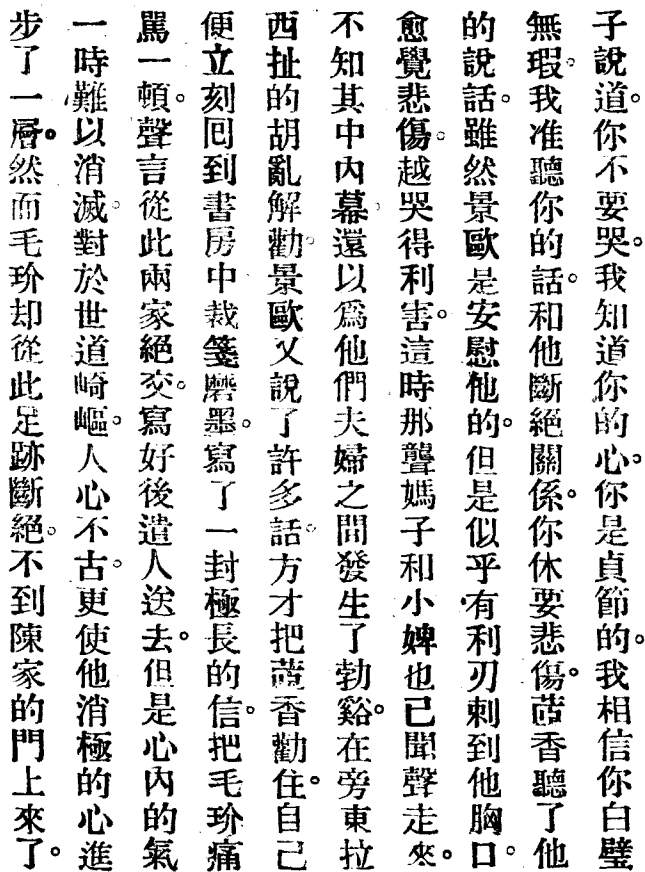 子說道。你不要哭。我知道你的心。你是貞節的。我相信你白璧
無瑕。我准聽你的話。和他斷絕關係。你休要悲傷。茝香聽了他
的說話。雖然景歐是安慰他的。但是似乎有利刃刺到他胸口。
愈覺悲傷。越哭得利害。這時那聾媽子和小婢也已聞聲走來。
不知其中內幕。還以爲他們夫婦之間發生了勃谿。在旁東拉
西扯的胡亂解勸。景歐又說了許多話。方才把茝香勸住。自己
便立刻囘到書房中裁箋磨墨。寫了一封極長的信。把毛玠痛
罵一頓。聲言從此兩家絕交。寫好後遣人送去。但是心內的氣
一時難以消滅。對於世道崎嶇。人心不古。更使他消極的心進
步了一層。然而毛玠却從此足跡斷絕。不到陳家的門上來了。